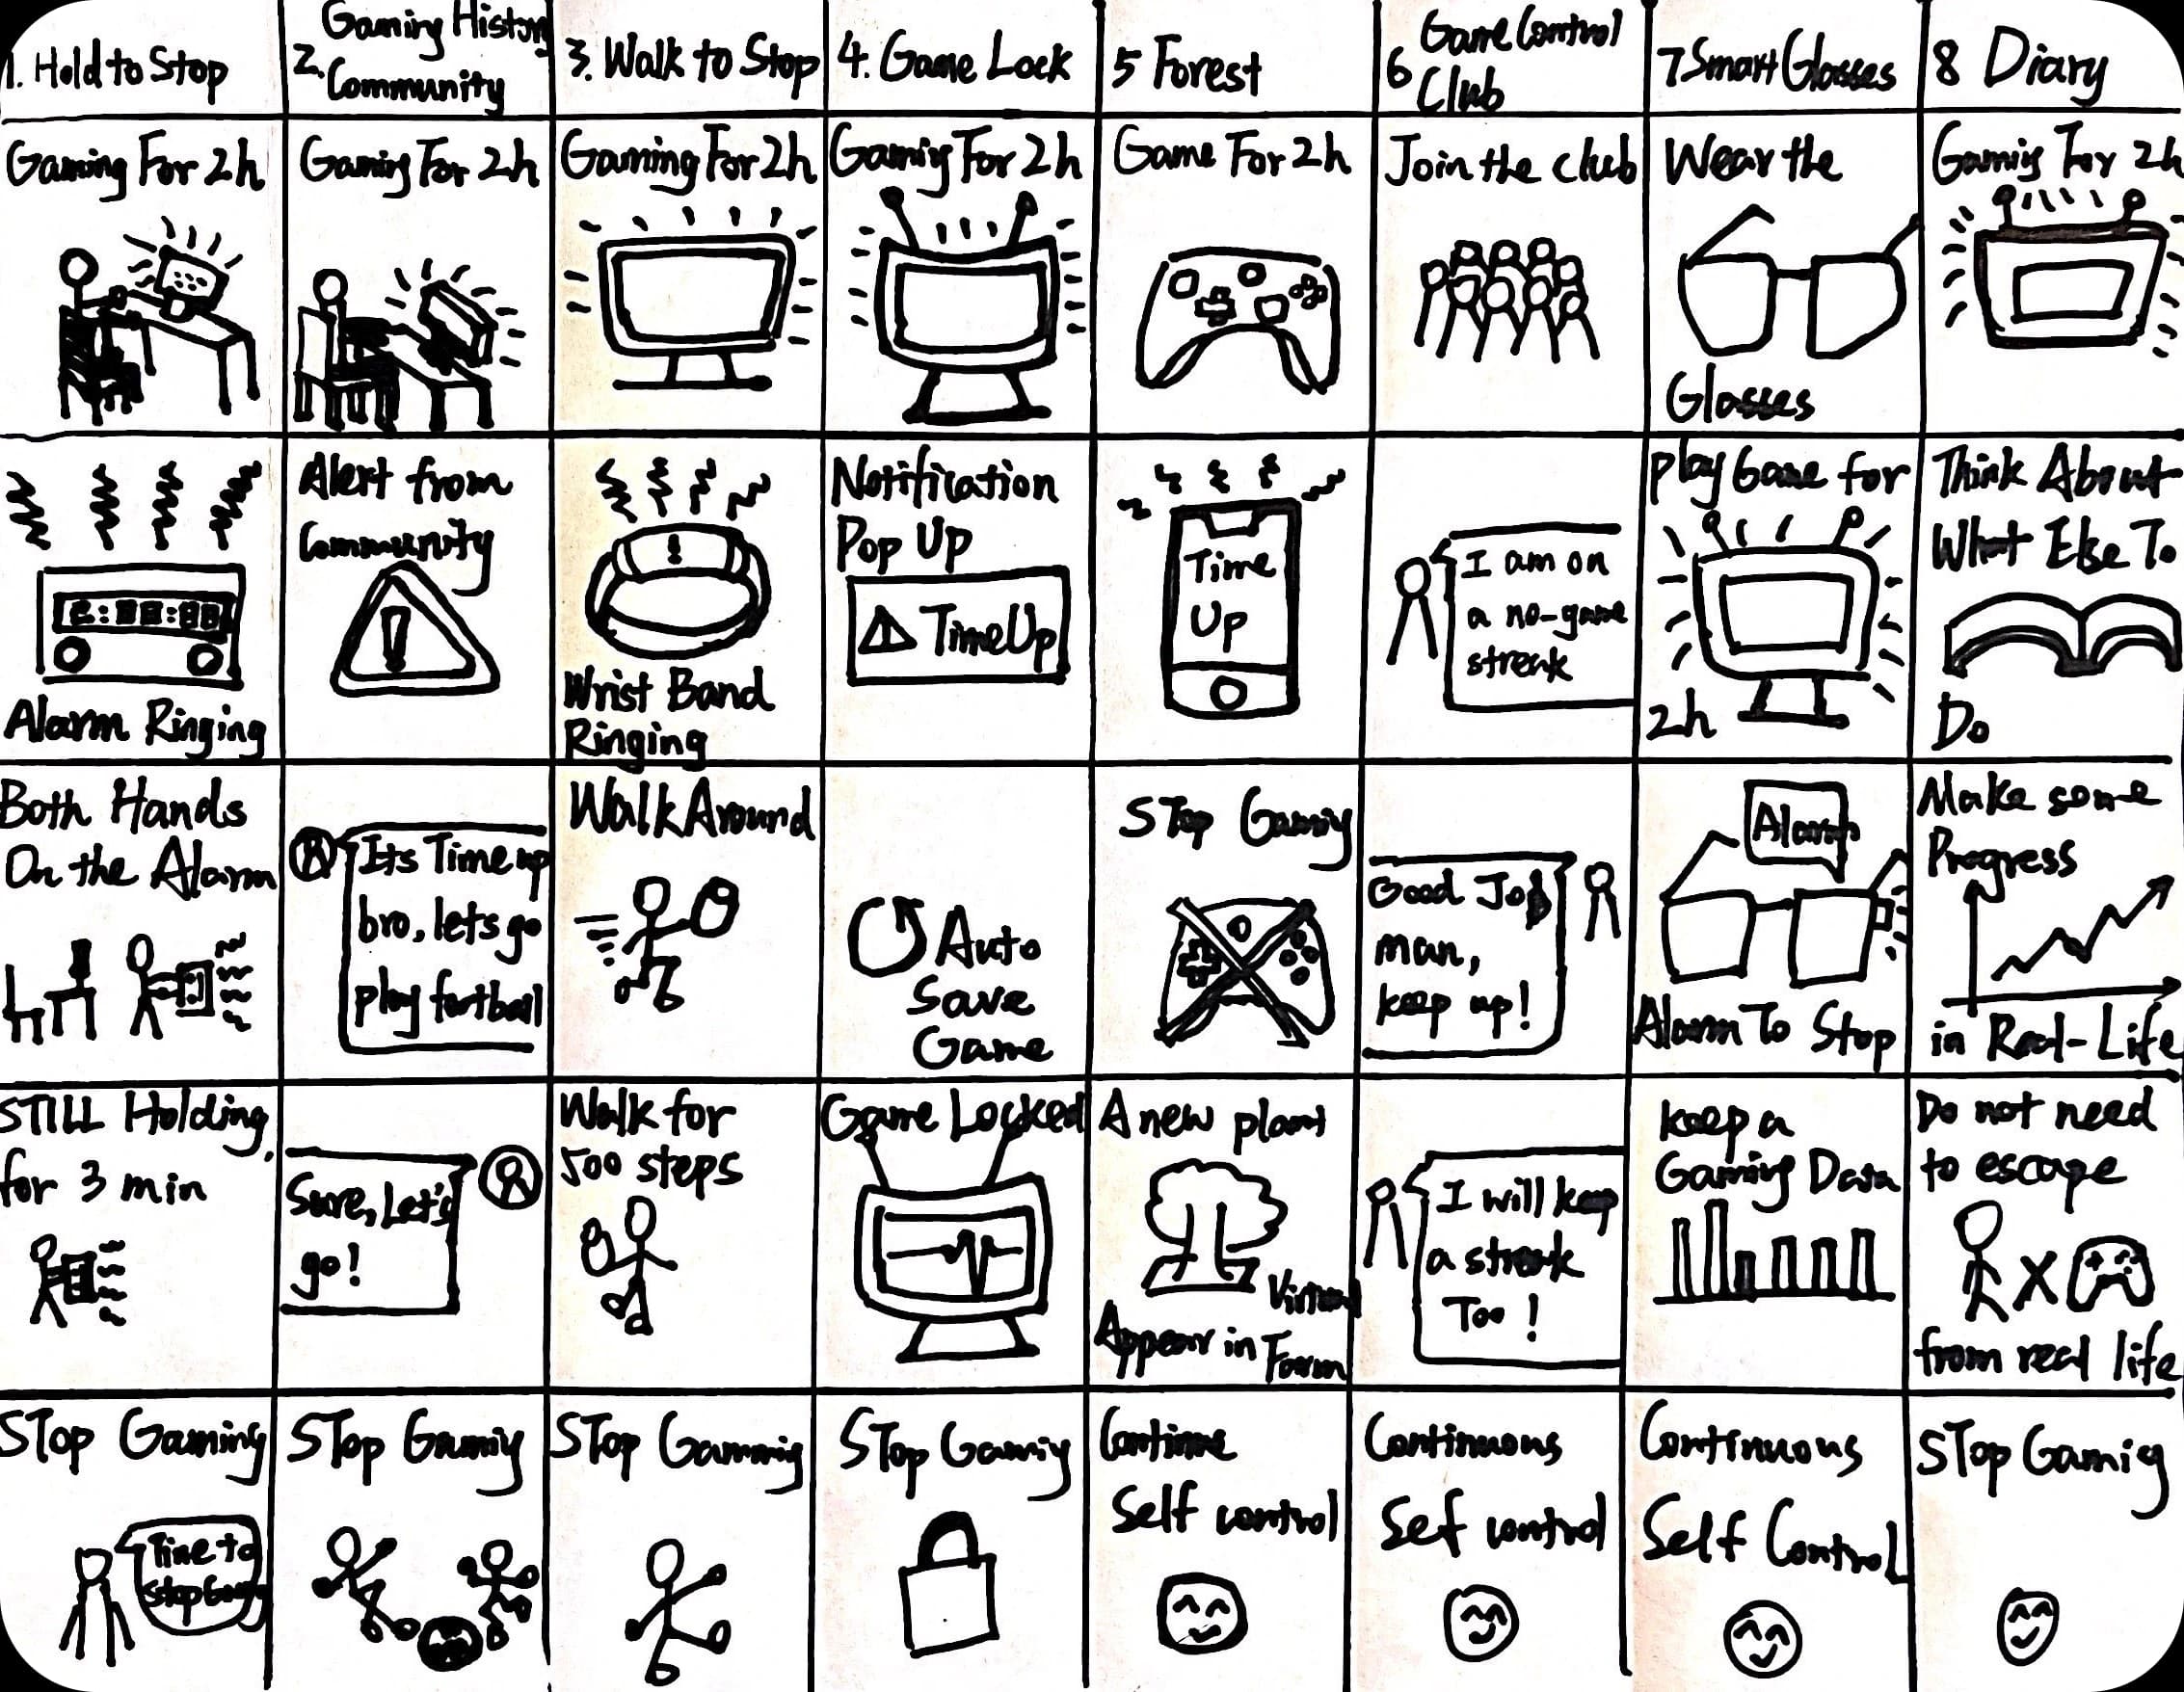 1. Hold to Stop
2. Gaming History
Community
3. Walk to Stop
4. Game Lock
5 Forest
6 Game Control
Club
7 Smart Glasses
8 Diary
Gaming For 2h
Gaming For 2h
Gaming For 2h
Gaming For 2h
Game For 2h
Join the club
Wear the
Glasses
Gamig For 2h
Alarm Ringing
Alert from
Community
!
!
Wrist Band
Ringing
Notification
Pop Up
! Time Up
Time
Up
I am on
a no-game
streak
play Game for
2h
Think About
What Else To
Do
Both Hands
On the Alarm
Its Time up
bro, lets go
play football
Walk Around
Auto
Save
Game
STop Gamig
Good Job
man,
keep up!
Alarm
Alarm To Stop
Make some
Progress
in Real-Life
STILL Holding
for 3 min
Sure, Let's
go!
Walk for
500 steps
Game Locked
A new plant
Virtual
Appear in Farm
I will keep
a streak
Too!
keep a
Gaming Data
Do not need
to escape
X
from real life
STop Gaming
Time to
stop Game
STop Gamig
STop Gammig
STop Gamig
Continue
Self control
Continuous
Sef control
Continuous
Self Control
STop Gamig